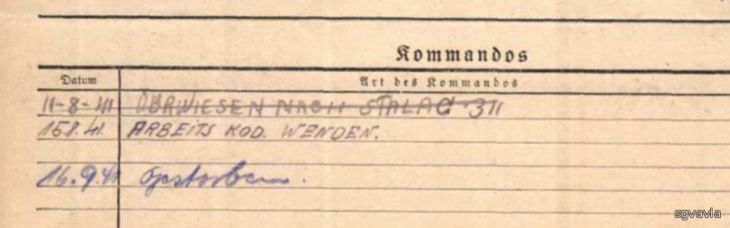 Kommandos
Datum Art des Kommandos
11-8-41 ÜBRWIESEN NACH STALAG 311
15.8.41. ARBEITS KOD. WENDEN.
16.9.41 Gestorben.
sgvavia